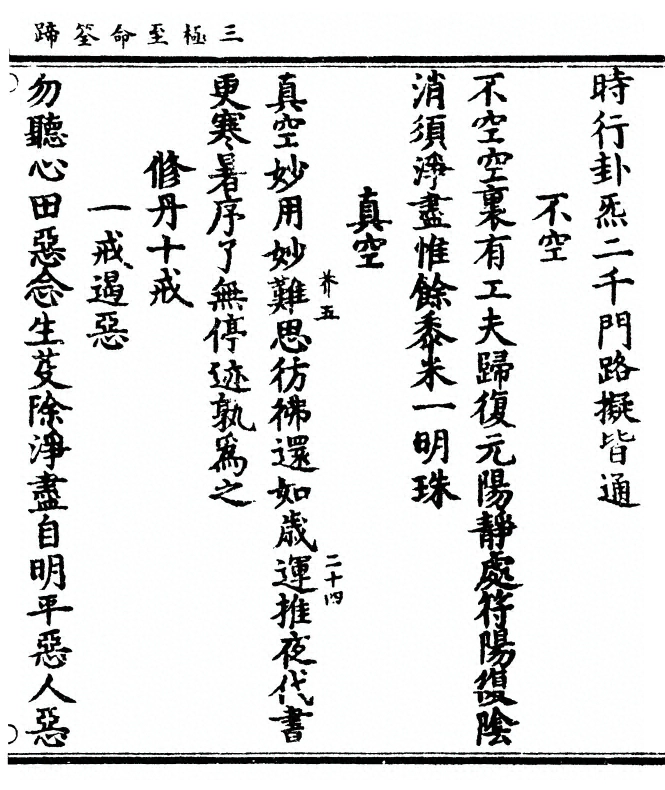 三極至命筌蹄
時行卦炁二千門路擬皆通
不空
不空空裏有工夫歸復元陽靜處符陽復陰
消須淨盡惟餘黍米一明珠
真空
芥五
二十四
真空妙用妙難思彷彿還如歲運推夜代書
更寒暑序了無停迹孰爲之
修丹十戒
一戒遏惡
勿聽心田惡念生芟除淨盡自明平惡人惡